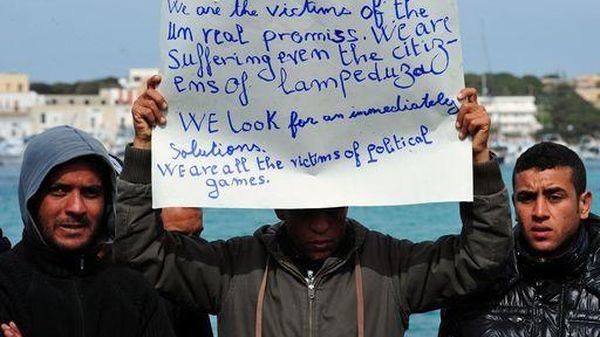 We are the victims of the
un real promiss. We are
suffering even the citiz-
ens of lampeduza
We look for an immediately
solutions.
We are all the victims of political
games.